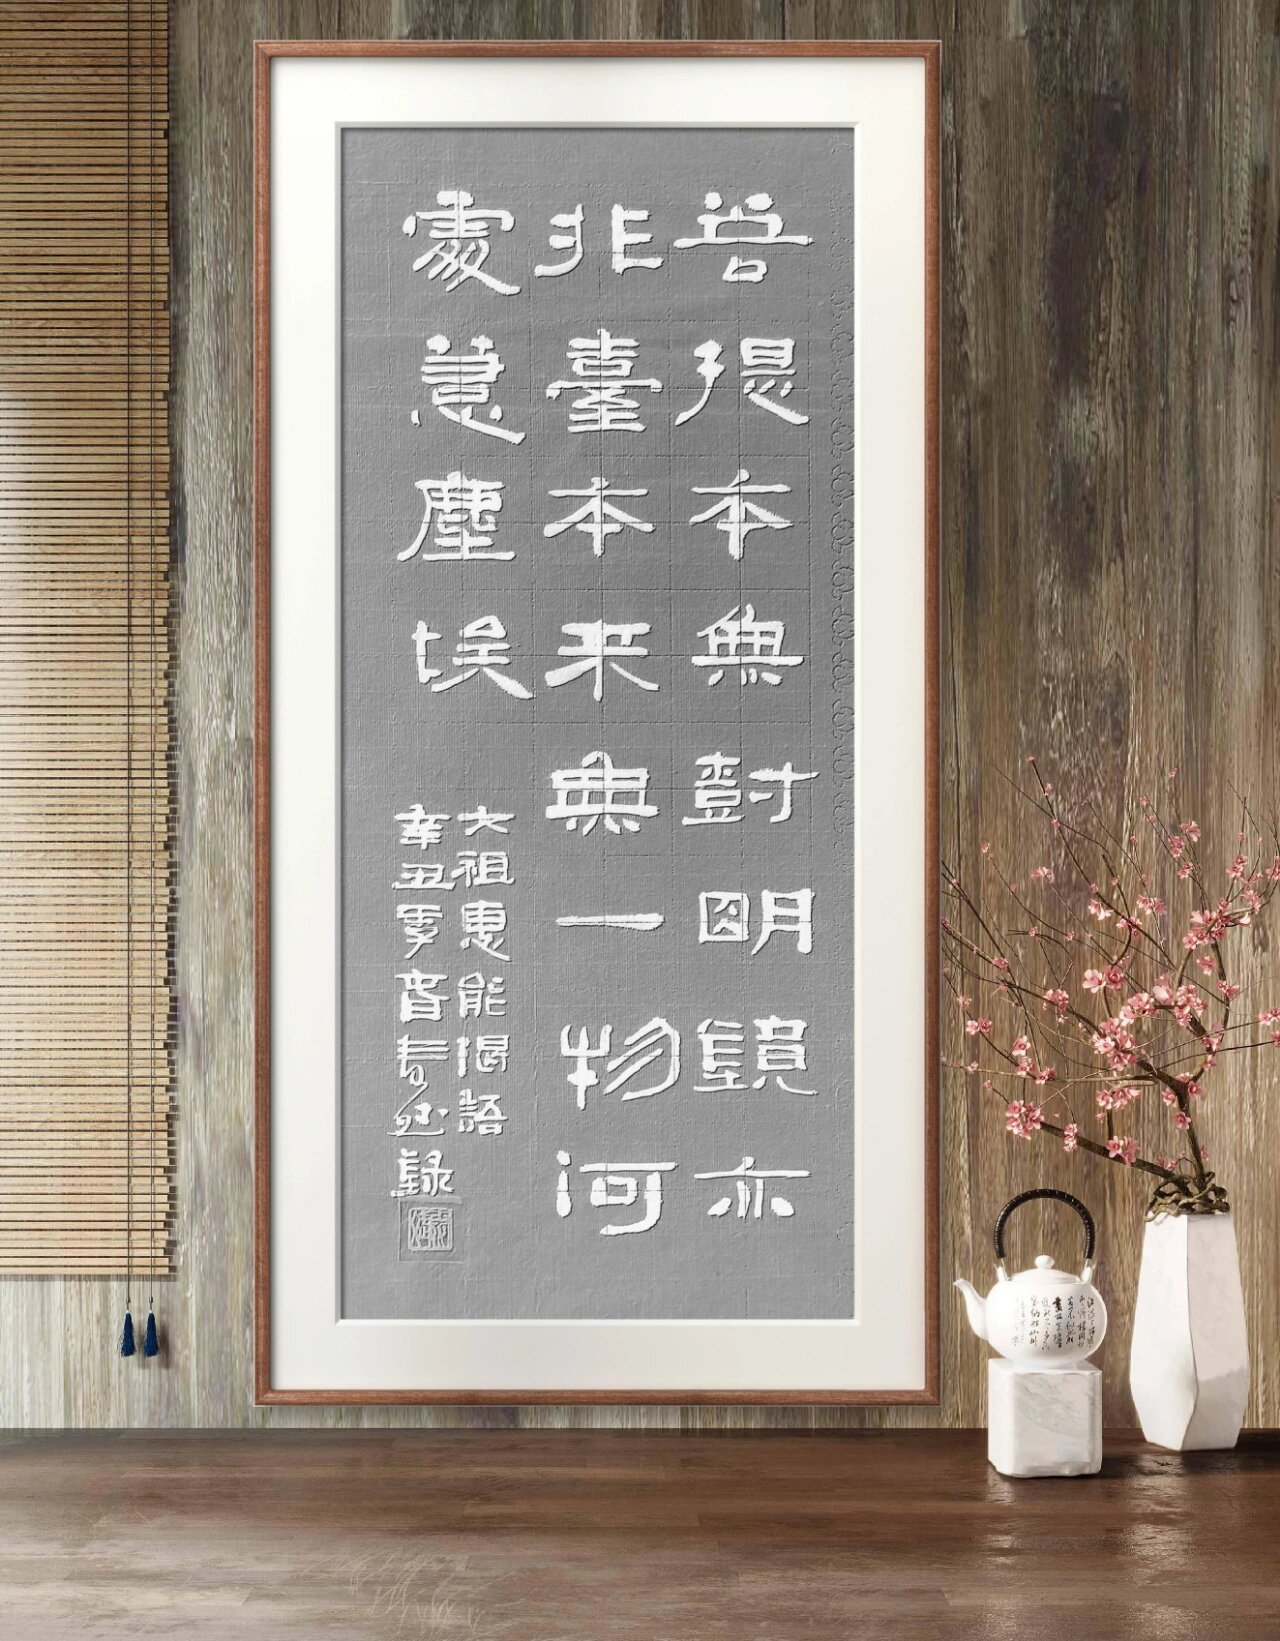 菩提本無樹明鏡亦
非臺本來無一物何
處惹塵埃
六祖惠能偈語
辛丑季春錄